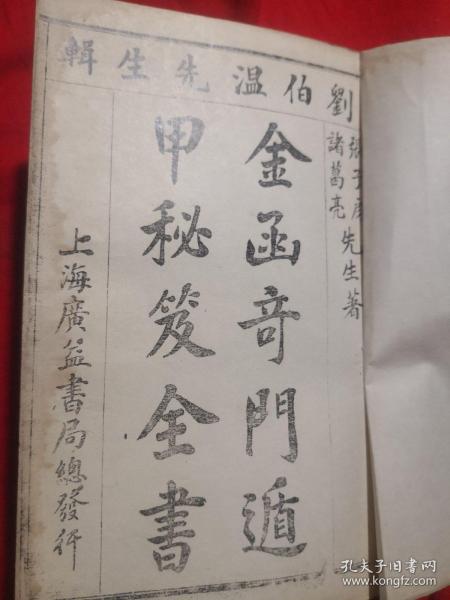 劉伯溫先生輯
張子房
諸葛亮
先生著
金函奇門遁
甲秘笈全書
上海廣益書局總發行
孔夫子旧书网